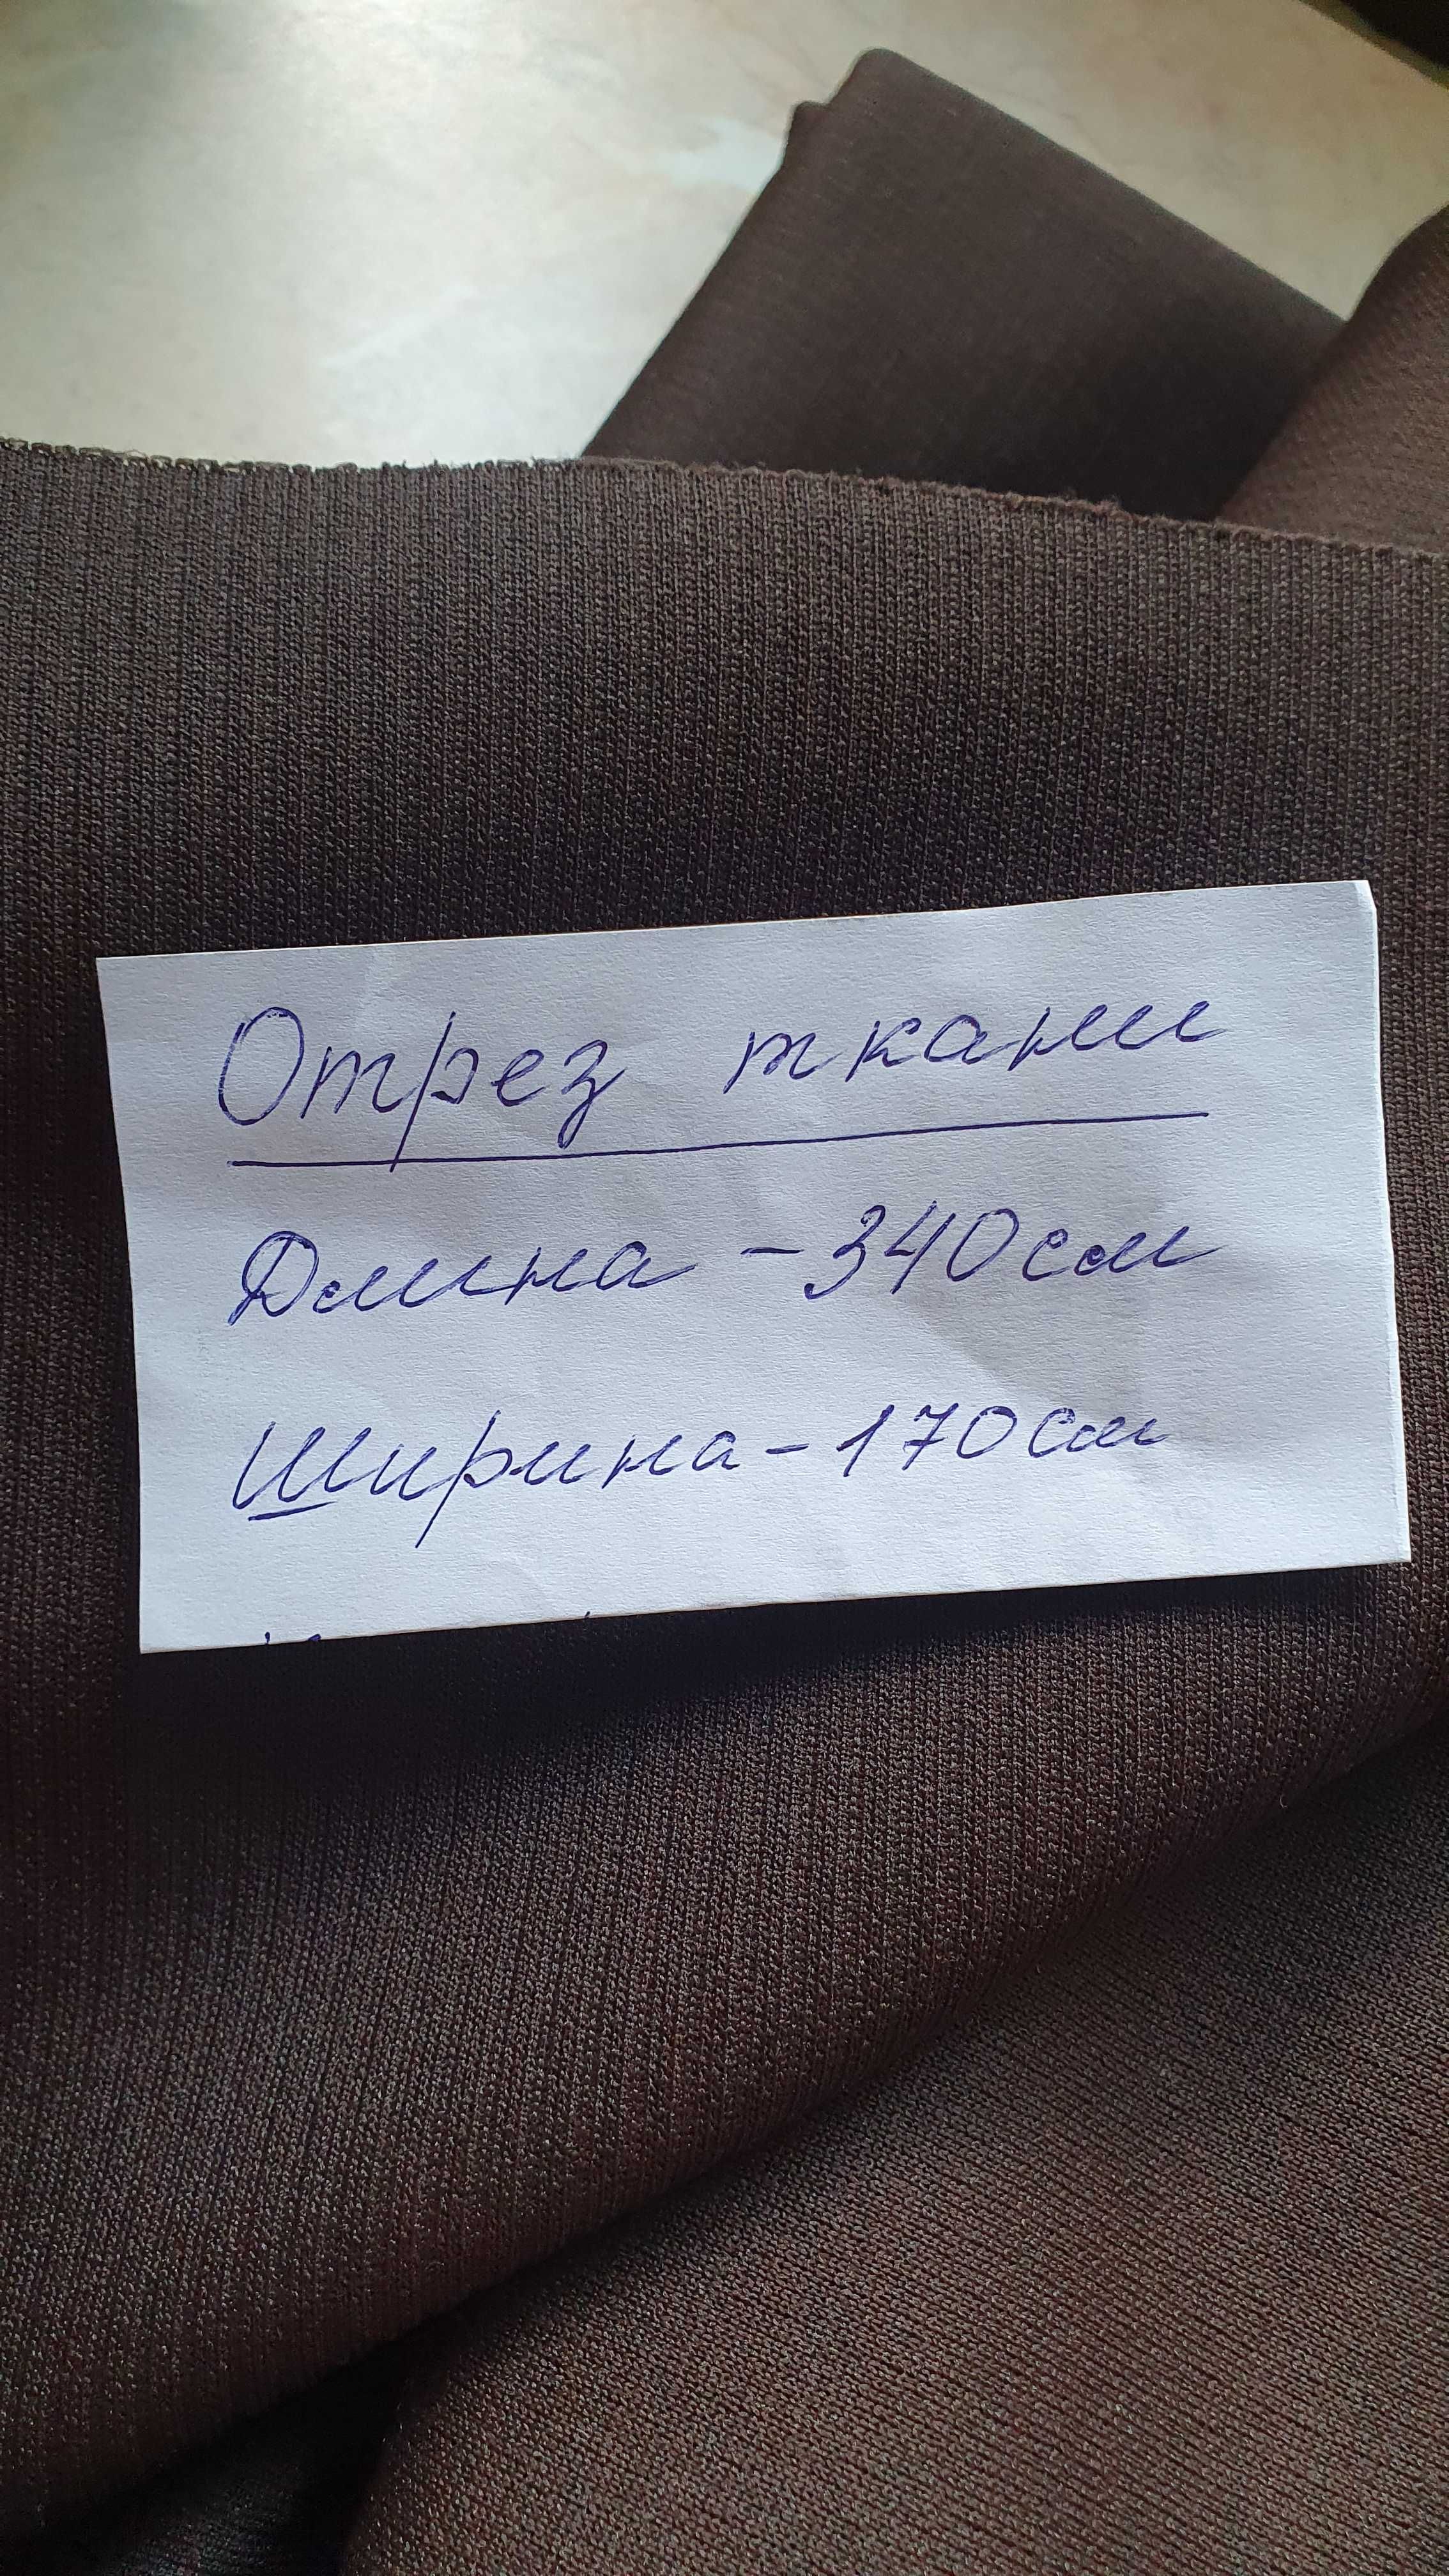 Отрез ткани
Длина - 340 см
Ширина - 170 см